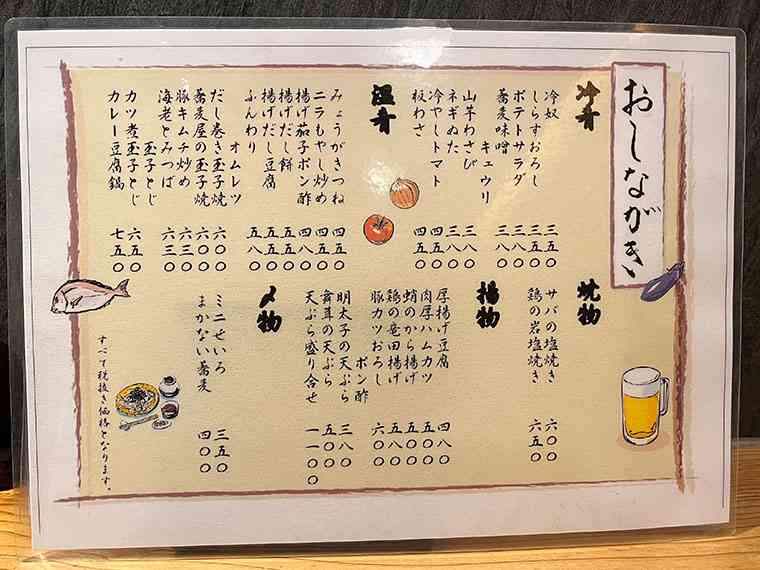 おしながき
冷肴
冷奴 三五〇
しらすおろし 三五〇
ポテトサラダ 三八〇
蕎麦味噌キュウリ 三八〇
山芋わさび 三八〇
ネギぬた 三八〇
冷やしトマト 四五〇
板わさ 四五〇
温肴
みょうがきつね 四五〇
ニラもやし炒め 四五〇
揚げ茄子ポン酢 四八〇
揚げだし餅 五五〇
揚げだし豆腐 五五〇
ふんわりオムレツ 五八〇
だし巻き玉子焼 六〇〇
蕎麦屋の玉子焼 六〇〇
豚キムチ炒め 六三〇
海老とみつば玉子とじ 六三〇
カツ煮玉子とじ 六五〇
カレー豆腐鍋 七五〇
焼物
サバの塩焼き 六〇〇
鶏の岩塩焼き 六五〇
揚物
厚揚げ豆腐 四八〇
肉厚ハムカツ 五五〇
蛸のから揚げ 五五〇
鶏の竜田揚げ 五八〇
豚カツおろしポン酢 六〇〇
明太子の天ぷら 三八〇
舞茸の天ぷら 五〇〇
天ぷら盛り合せ 一一〇〇
〆物
ミニせいろ 三五〇
まかない蕎麦 四〇〇
すべて税抜き価格となります。